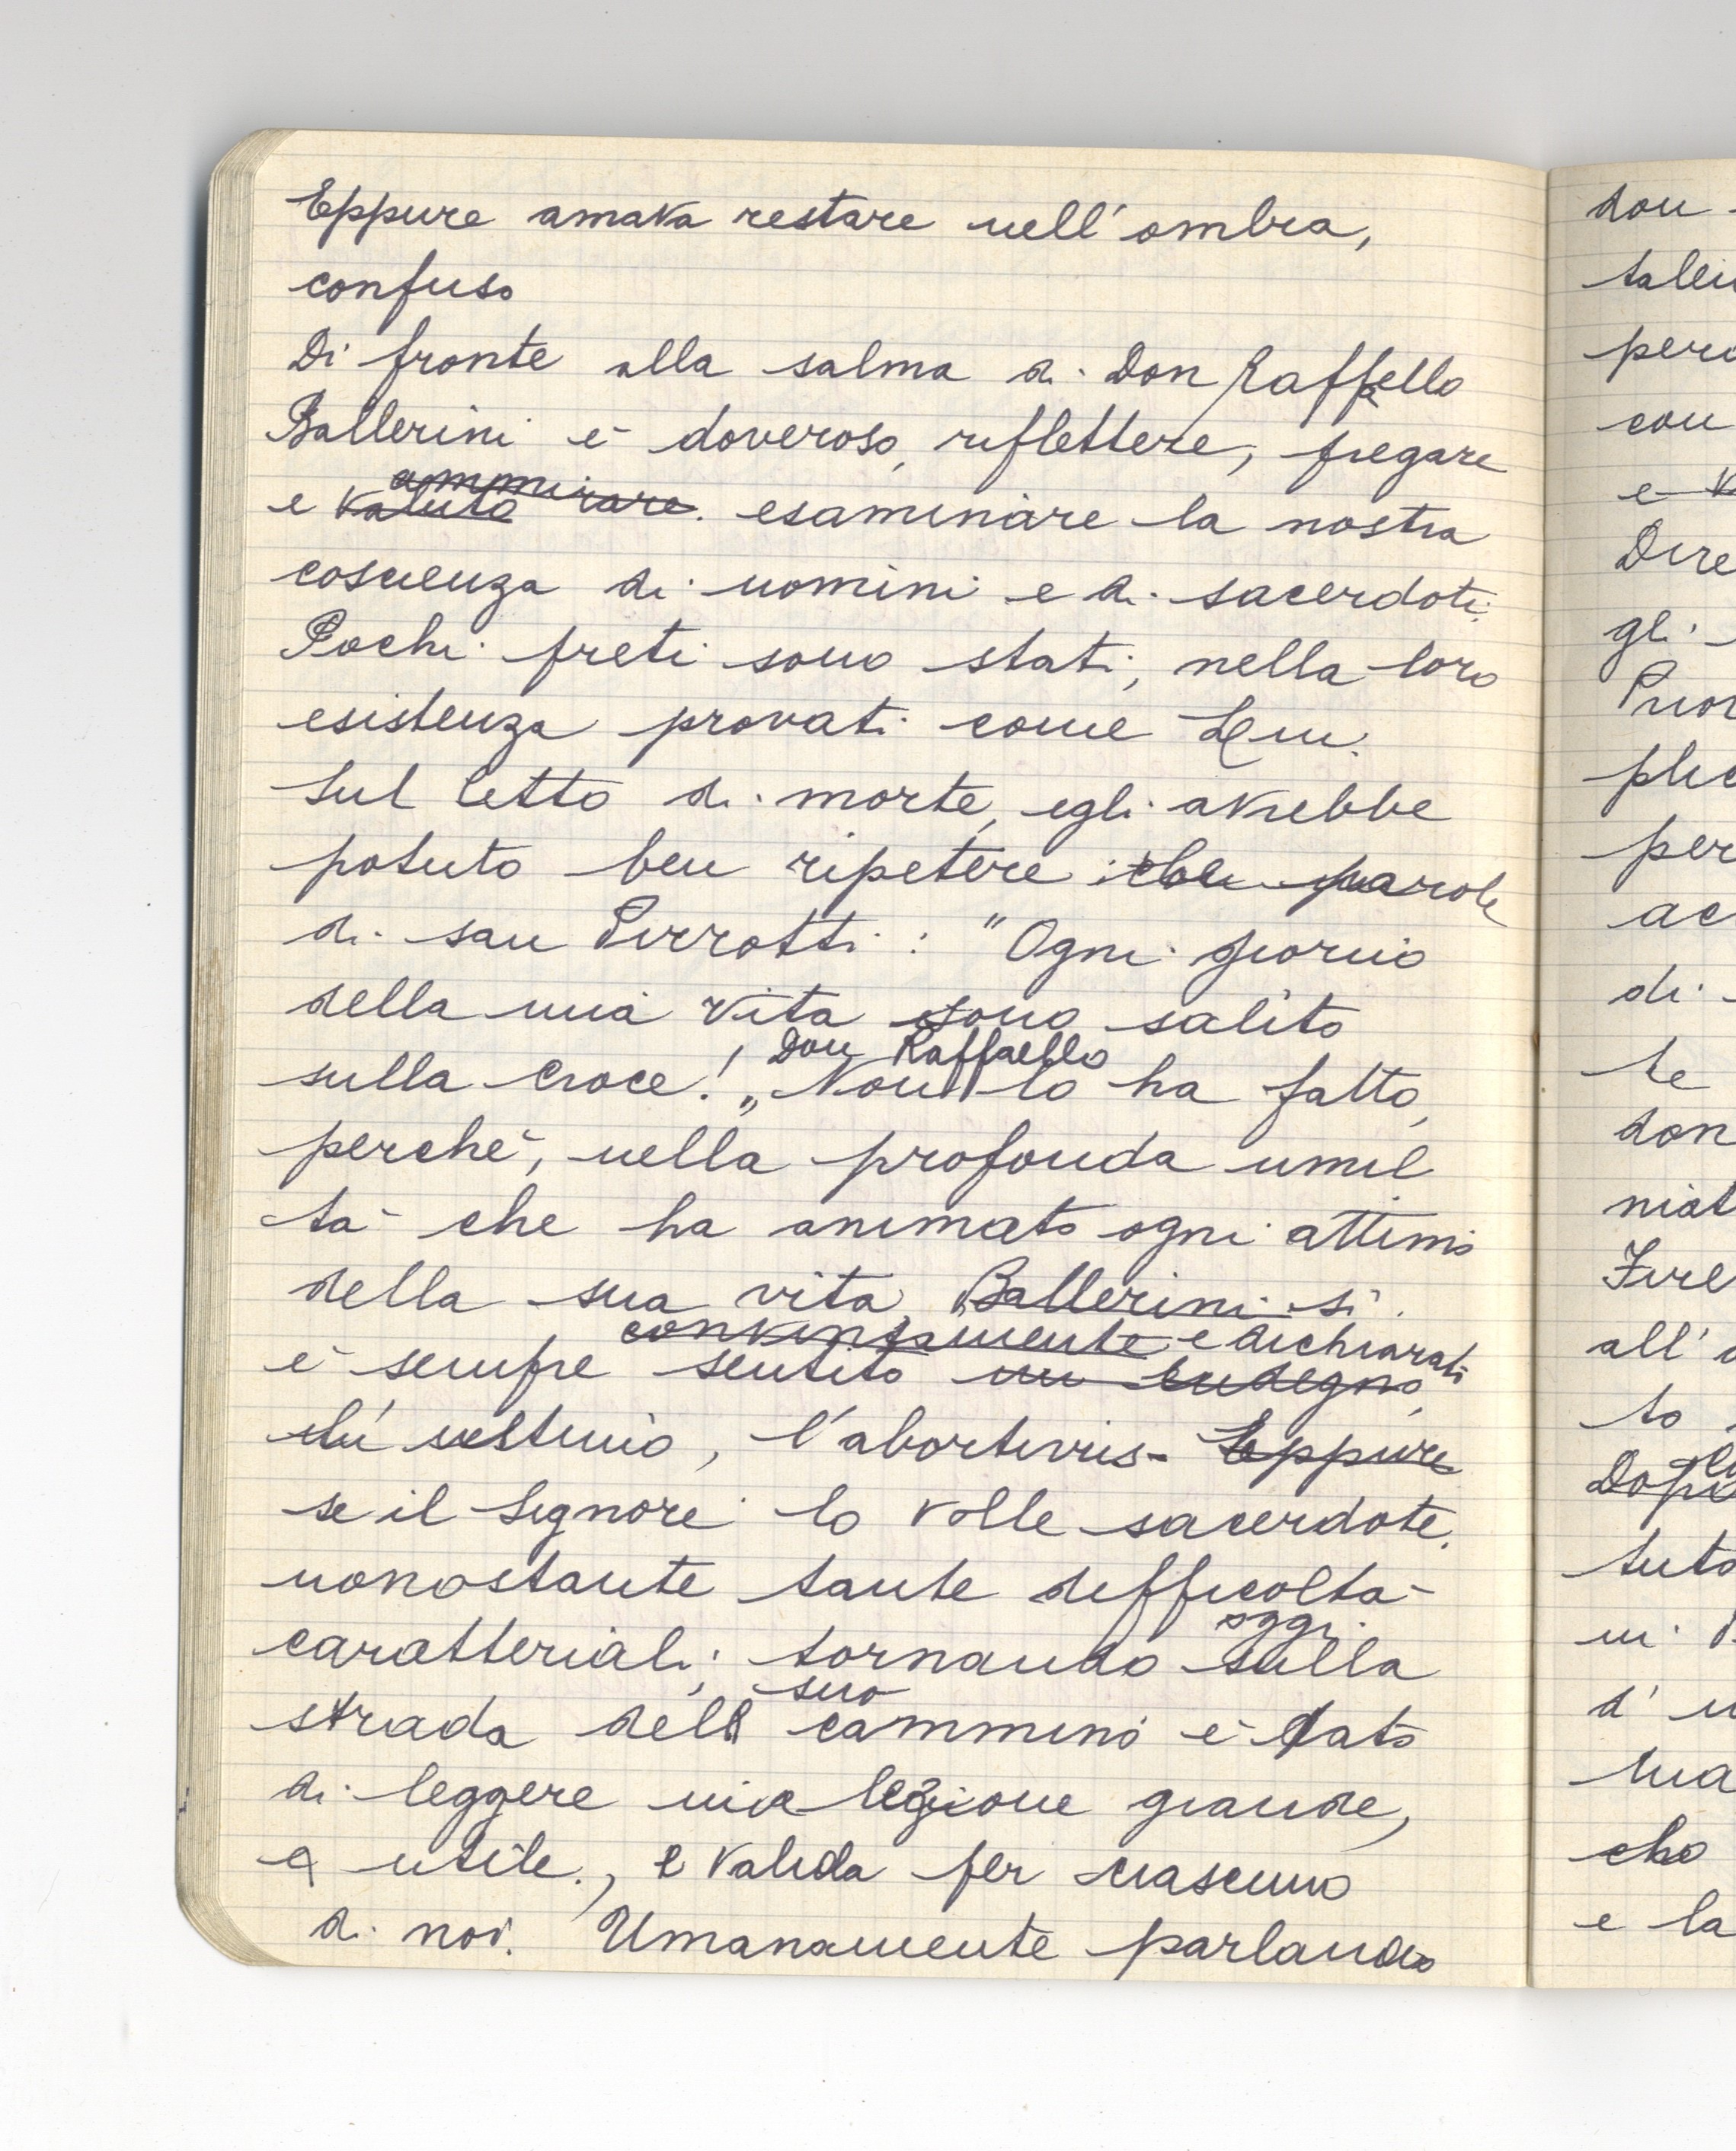 Eppure amava restare nell'ombra,
confuso
Di fronte alla salma di Don Raffaello
Ballerini è doveroso, riflettere, pregare
ammirare.
e valuto esaminare la nostra
coscienza di uomini e di sacerdoti.
Pochi preti sono stati, nella loro
esistenza provati come Lui.
Sul letto di morte, egli avrebbe
potuto ben ripetere parole
di san : "Ogni giorno
della mia vita sono salito
Don Raffaello
sulla croce!„ Non lo ha fatto,
perchè, nella profonda umil
tà che ha animato ogni attimo
della sua vita Ballerini si
convintamente e dichiarato
è sempre sentito un indegno,
l'abortivus- Eppure
se il Signore lo volle sacerdote,
nonostante tante difficoltà
oggi
caratteriali, tornando sulla
suo
strada dell cammino è dato
di leggere una lezione grande,
e utile., e valida per ciascuno
di noi. Umanamente parlando
don
pero
con
e
Dire
gli
per
ac
di
te
don
niat
Fire
all'
to
tuto
ni
d'
ma
cho
e la